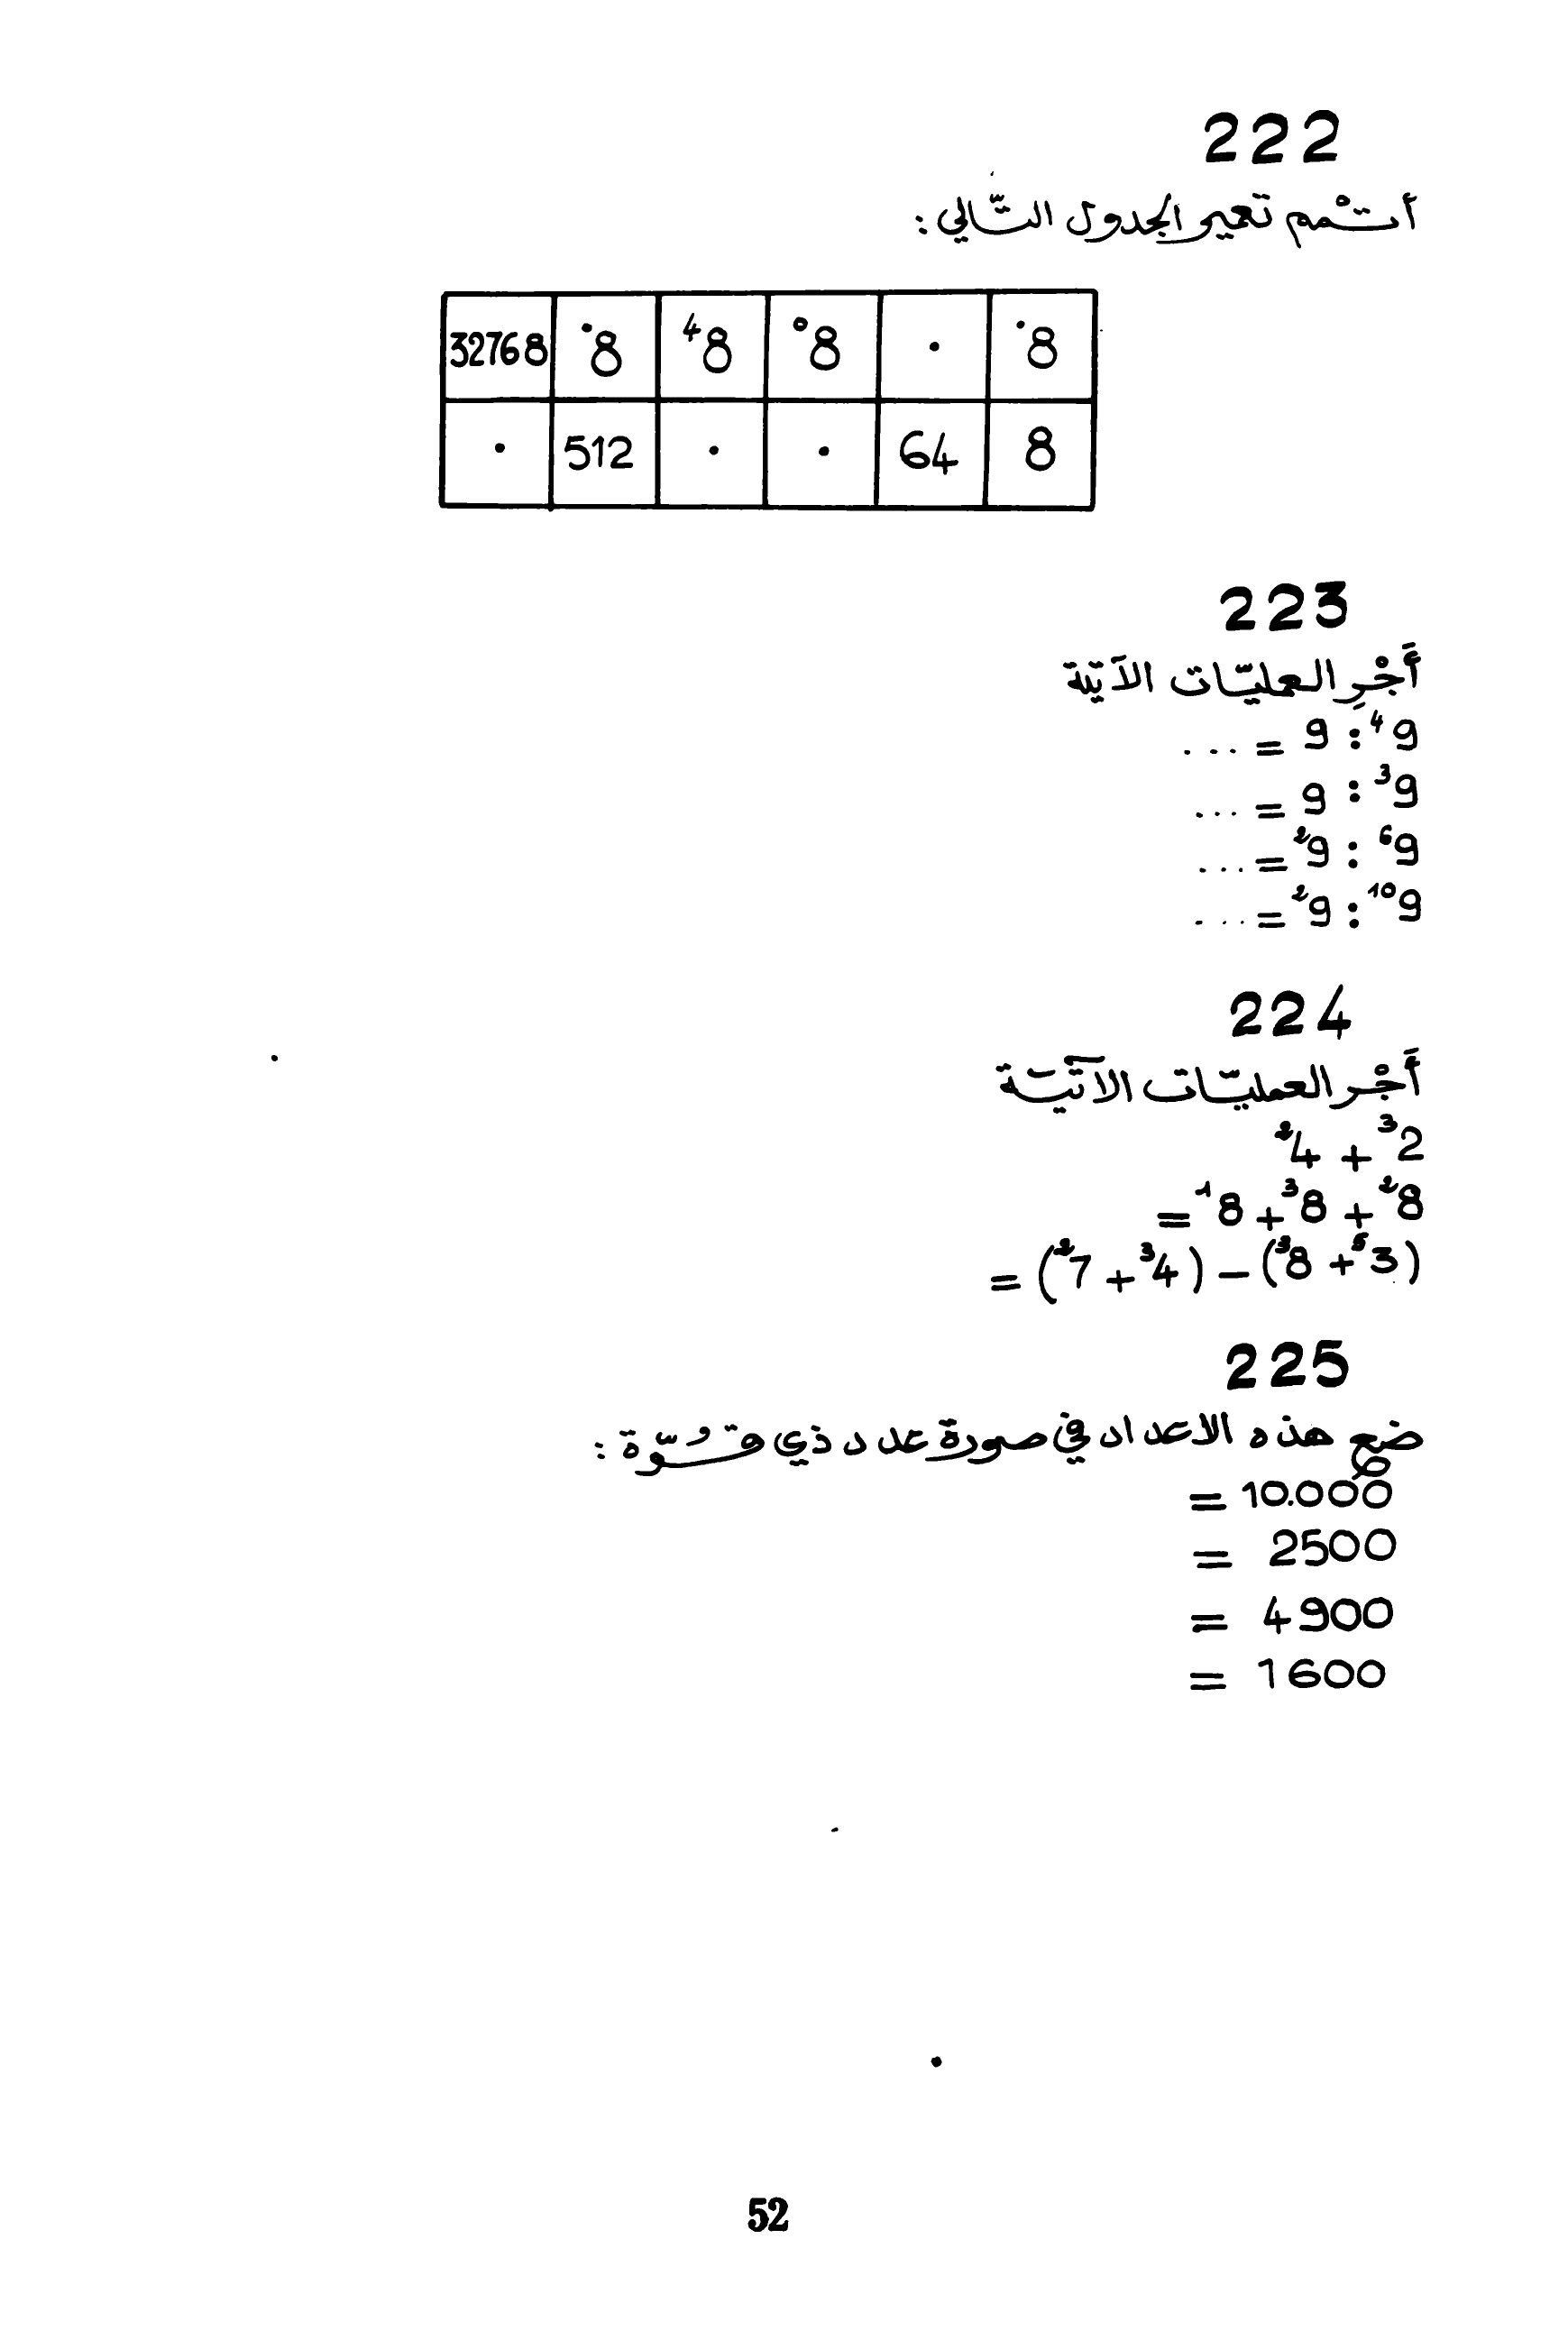 222
أتْمم تعمير الجدول التّالي :
8˙ | . | 8⁰ | 8⁴ | 8˙ | 32768
8 | 64 | . | . | 512 | .
223
أَجْرِ العمليّات الآتية
9⁴ : 9 = ...
9³ : 9 = ...
9⁶ : 9² = ...
9¹⁰ : 9² = ...
224
أَجْر العمليّات الآتيَة
2³ + 4²
8² + 8³ + 8¹ =
(3⁵ + 8³) − (4³ + 7²) =
225
ضع هذه الاعداد في صورة عدد ذي قُوّة :
10.000 =
2500 =
4900 =
1600 =
52